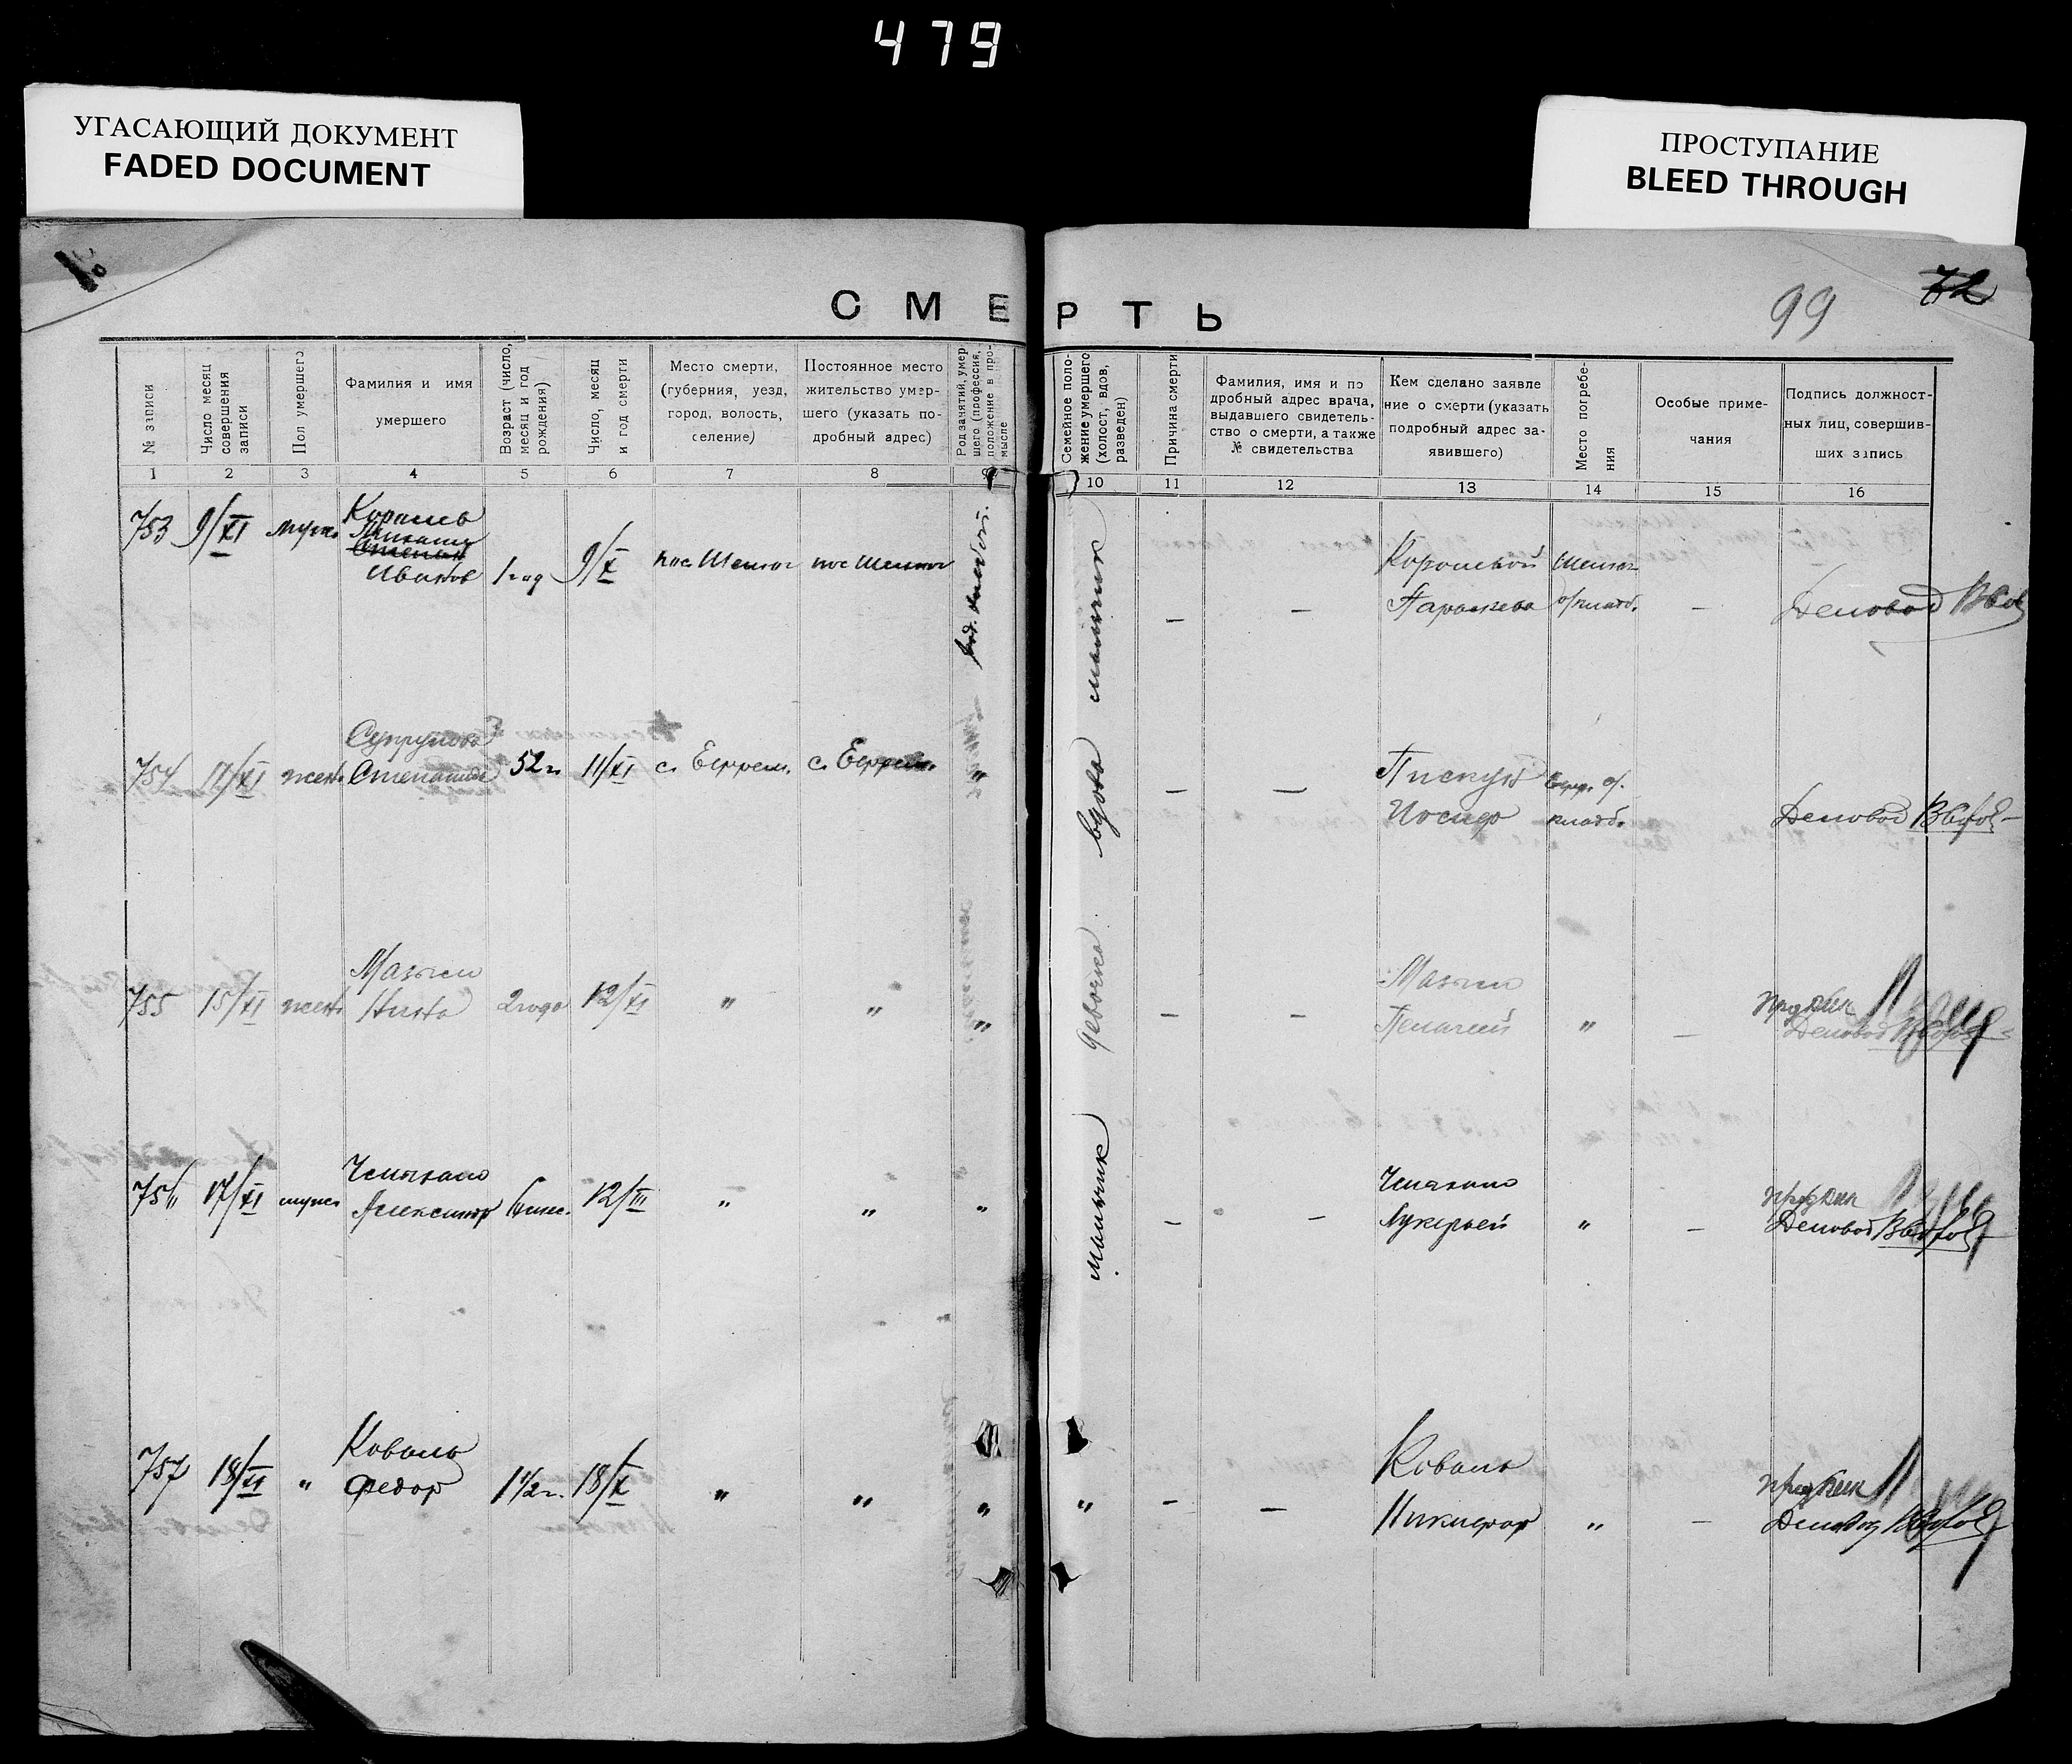 479
УГАСАЮЩИЙ ДОКУМЕНТ
FADED DOCUMENT
ПРОСТУПАНИЕ
BLEED THROUGH
99
72
СМЕРТЬ
№ записи
Число месяц
совершения
записи
Пол умершего
Фамилия и имя
умершего
Возраст (число,
месяц и год
рождения)
Число, месяц
и год смерти
Место смерти,
(губерния, уезд,
город, волость,
селение)
Постоянное место
жительство умер-
шего (указать по-
дробный адрес)
Род занятий, умер
шего (профессия,
положение в про-
мысле
Семейное поло-
жение умершего
(холост, вдов,
разведен)
Причина смерти
Фамилия, имя и по
дробный адрес врача,
выдавшего свидетель-
ство о смерти, а также
№ свидетельства
Кем сделано заявле
ние о смерти (указать
подробный адрес за-
явившего)
Место погребе-
ния
Особые приме-
чания
Подпись должност-
ных лиц, совершив-
ших запись
1 2 3 4 5 6 7 8 9 10 11 12 13 14 15 16
753 9/XI муж.
Король
Иванов
1 год 9/X
мальчик
—
—
Королевой
Параскева
—
Деловод
754 11/XI жен.
Супрунова
Степанида
52 г. 11/XI с. Ефрем. с. Ефрем. "
вдова
—
—
Пискун
Иосиф
Ефр. о/.
кладб.
Деловод
755 15/XI жен.
2 года 12/XI " " "
девочка
—
—
Пелагеи
"
—
Деловод
756 17/XI муж.
Александр
6 мес. 12/III " " "
мальчик
—
—
Лукерьей
"
—
Деловод
757 18/XI "
Коваль
Федор
1 1/2 г. 18/X " " " "
—
—
Коваль
Никифор
"
—
Деловод